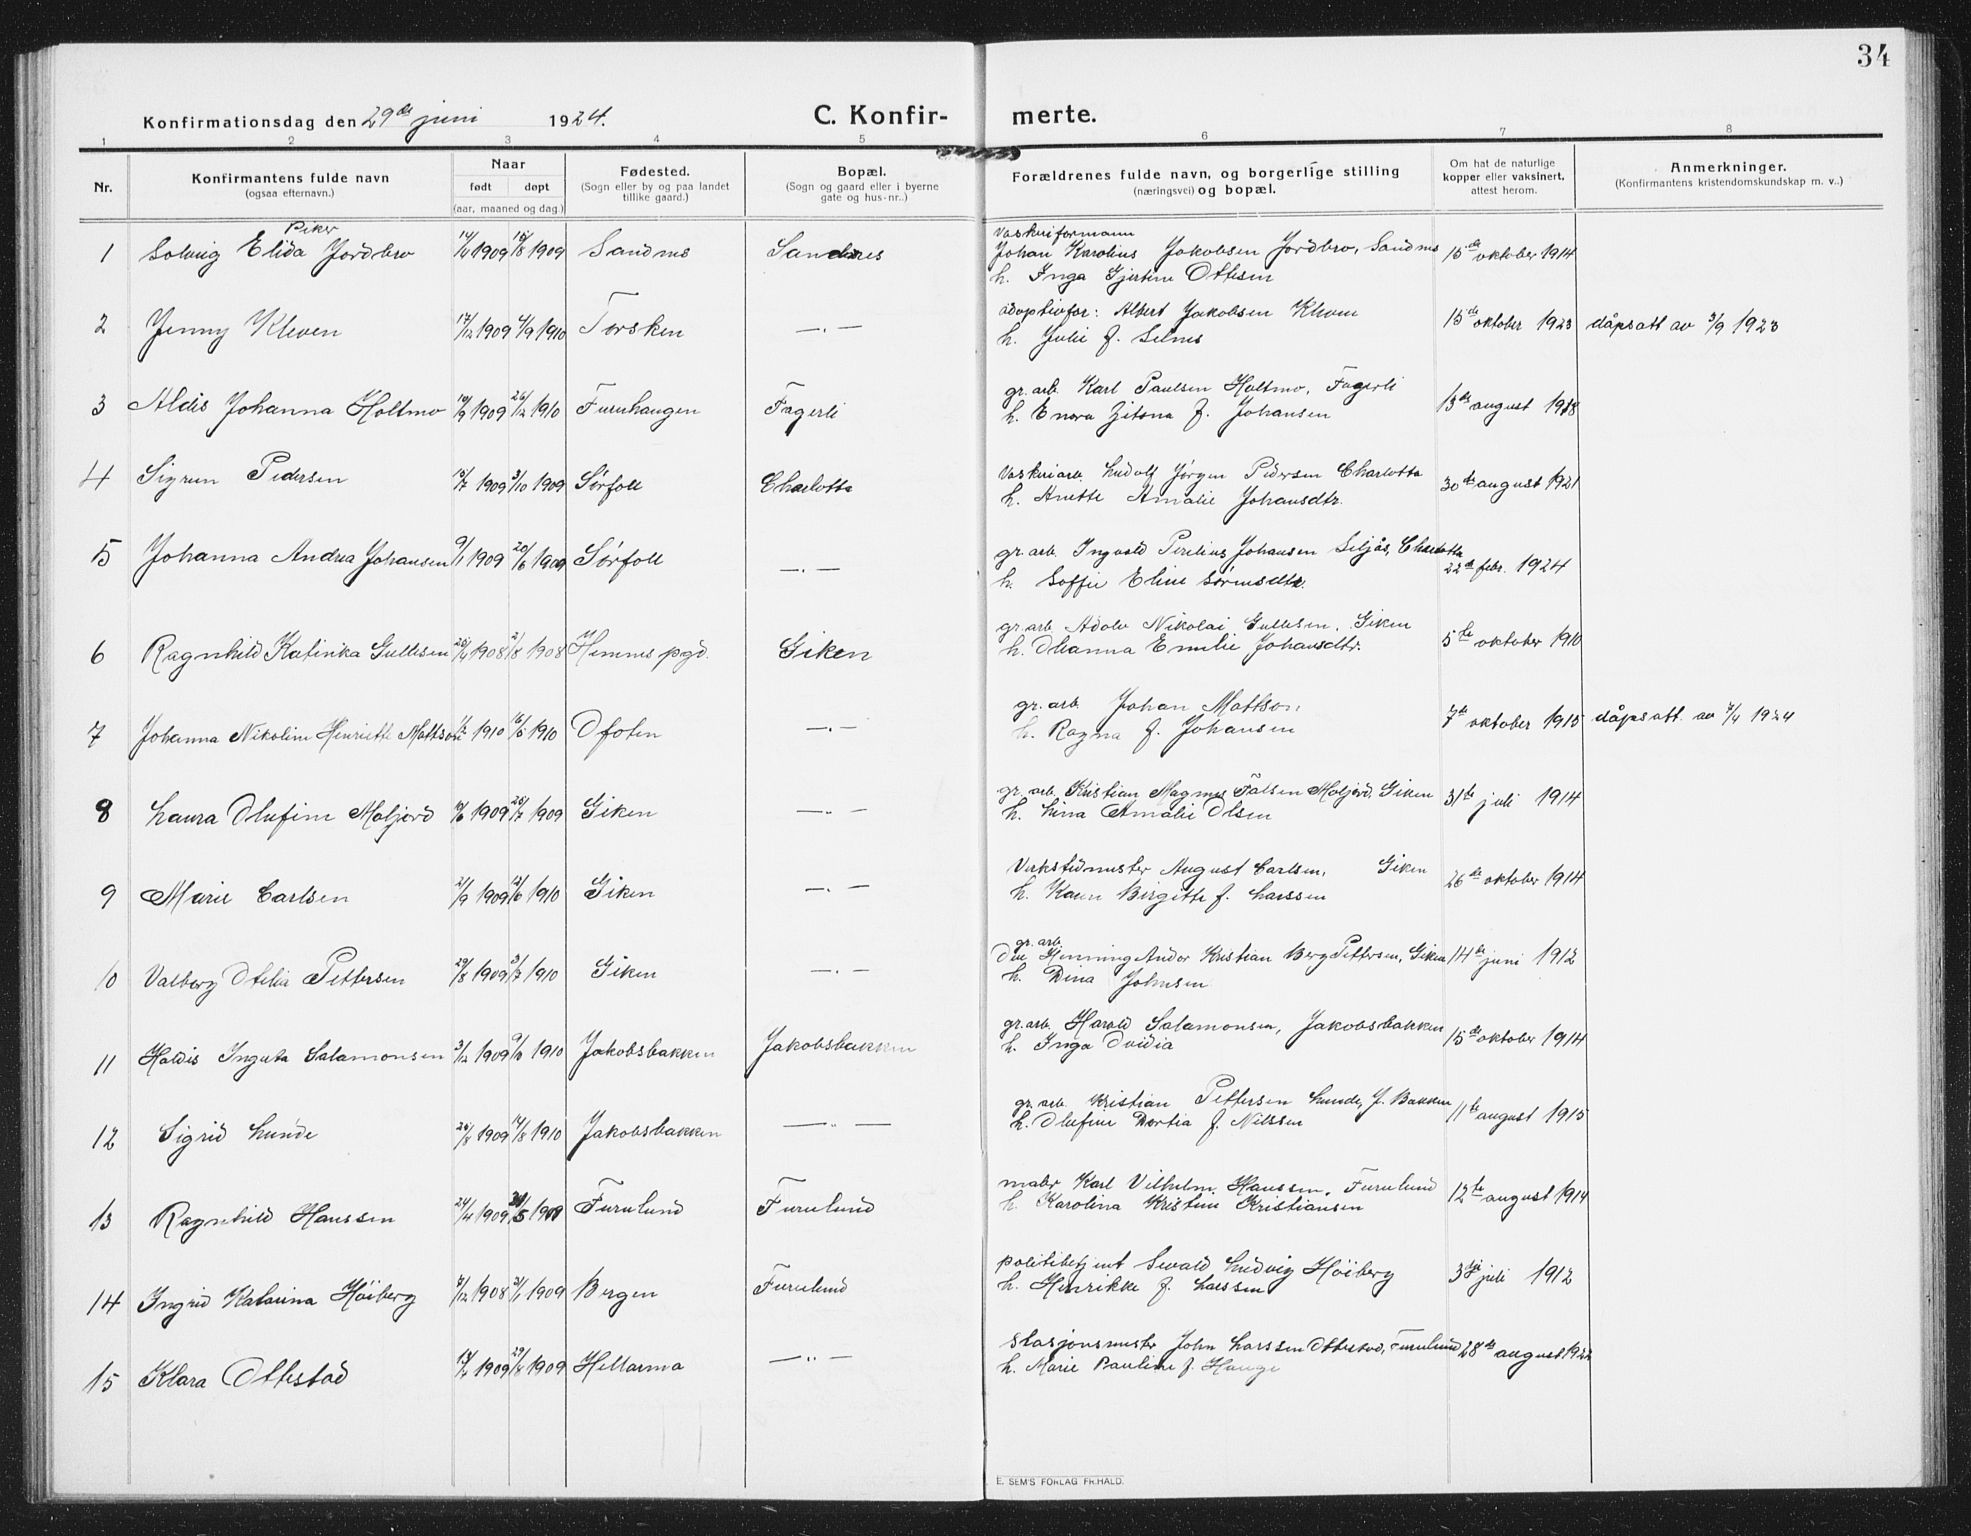 34
Konfirmationsdag den 29de juni 1924. C. Konfir- merte.
1 2 3 4 5 6 7 8
Nr.
Konfirmantens fulde navn
(ogsaa efternavn.)
Naar
født døpt
(aar, maaned og dag.)
Fødested.
(Sogn eller by og paa landet
tillike gaard.)
Bopæl.
(Sogn og gaard eller i byerne
gate og hus-nr.)
Forældrenes fulde navn, og borgerlige stilling
(næringsvei) og bopæl.
Om hat de naturlige
kopper eller vaksinert,
attest herom.
Anmerkninger.
(Konfirmantens kristendomskundskap m. v.)
Piker
Vaskeriformann
1 Solveig Elida Jordbro 14/4 1909 15/8 1909 Sandnes Sandnes Johan Karolius Jakobsen Jordbro, Sandnes 15de oktober 1914
h. Inga Gjertine Ottesen
2 Jenny Kleven 17/12 1909 4/9 1910 Torsken —„— adoptivfor: Albert Jakobsen Kleven 15de oktober 1923 dåpsatt av 3/9 1923
h. Julie f. Selnes
3 Aldis Johanna Holtmo 10/9 1909 26/12 1910 Furuhaugen Fagerli gr. arb. Karl Paulsen Holtmo, Fagerli 13de august 1918
h. Enora Zitona f. Johansen
4 Sigrun Pedersen 15/7 1909 3/10 1909 Sørfold Charlotta Vaskeriarb. Ludolf Jørgen Pedersen Charlotta 30te august 1921
h. Anette Amalie Johansdtr.
5 Johanna Andrea Johansen 9/1 1909 20/6 1909 Sørfold —„— gr. arb. Ingvald Perelius Johansen Seljås, Charlotta 22de febr. 1924
h. Soffie Eline Sørensdtr.
6 Ragnhild Katinka Gullesen 25/4 1908 2/8 1908 Hemnes pgd. Giken gr. arb. Adolv Nikolai Gullesen, Giken 5te oktober 1910
h. Olianna Emilie Johansdtr.
7 Johanna Nikoline Henriette Mattson 1/2 1910 16/5 1910 Ofoten —„— gr. arb. Johan Mattson 7de oktober 1915 dåpsatt. av 7/4 1924
h. Ragna f. Johansen
8 Laura Olufine Moljord 10/6 1909 25/7 1909 Giken —„— gr. arb. Kristian Magnus Falsen Moljord, Giken 31te juli 1914
h. Lina Amalie Olsen
9 Marie Carlsen 21/9 1909 12/6 1910 Giken —„— Verkstedmester August Carlsen, Giken 26de oktober 1914
h. Karen Birgitte f. Larssen
gr. arb.
10 Valborg Otelia Pettersen 29/8 1909 3/7 1910 Giken —„— Ole Henning Andor Kristian Berg Pettersen, Giken 14de juni 1912
h. Dina Johnsen
11 Haldis Ingarta Salamonsen 3/12 1909 1910 Jakobsbakken Jakobsbakken gr. arb. Harald Salamonsen, Jakobsbakken 15de oktober 1914
h. Inga Ovidia
12 Sigrid Lunde 26/8 1909 14/8 1910 Jakobsbakken —„— gr. arb. Kristian Pettersen Lunde, J. Bakken 11te august 1915
h. Olufine Dortia f. Nilssen
13 Ragnhild Hanssen 24/4 1909 1909 Furulund Furulund maler Karl Vilhelm Hanssen, Furulund 12te august 1914
h. Karolina Kristine Kristiansen
14 Ingrid Katarina Höiberg 7/12 1908 31/1 1909 Bergen Furulund politibetjent Sevald Ludvig Höiberg juli 1912
h. Henrikke f. Larssen
15 Klara Ottestad 13/2 1909 29/8 1909 Hellarmo —„— Stasjonsmester John Larssen Ottestad, Furulund 28de august 1922
h. Marie Pauline f. Hauge
E. SEM'S FORLAG FR.HALD.